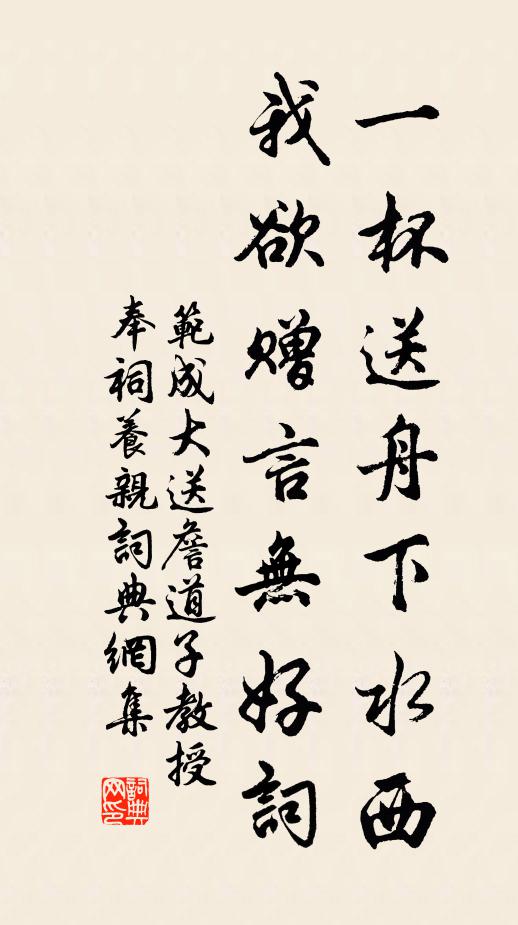 一杯送舟下水西
我欲赠言無好詞
範成大送詹道子教授
奉祠養親詞典網集
詞典网印